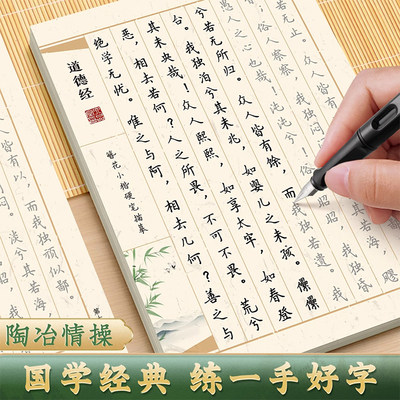 道德经
簪花小楷硬笔描摹
绝学无忧。唯之与阿，相去几何？善之与
恶，相去若何？人之所畏，不可不畏。荒兮
其未央哉！众人熙熙，如享太牢，如春登
台。我独泊兮其未兆，如婴儿之未孩。儽儽
兮若无所归。众人皆有馀，而我独
人之心也哉！沌沌兮！俗人昭昭，我
俗人察察，我独闷
若无止。众人皆有
皆有以，而我独顽似鄙。
澹兮其若海，
陶冶情操
国学经典 练一手好字